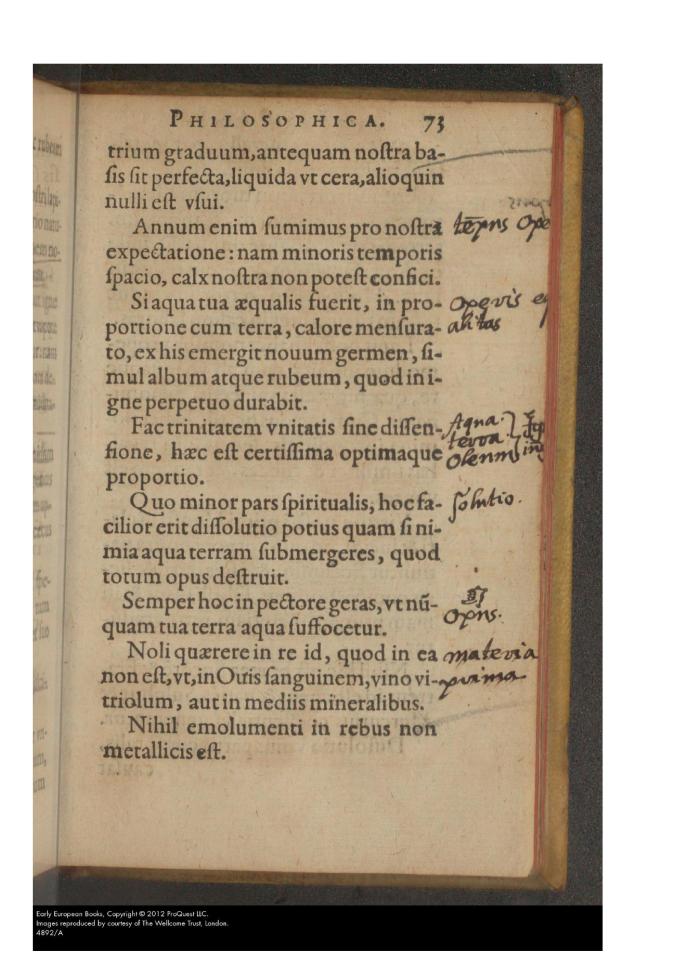 PHILOSOPHICA. 73
trium graduum, antequam noſtra ba-
ſis ſit perfecta, liquida vt cera, alioquin
nulli eſt vſui.
Annum enim ſumimus pro noſtra
expectatione: nam minoris temporis
ſpacio, calx noſtra non poteſt confici.
Si aqua tua æqualis fuerit, in pro-
portione cum terra, calore menſura-
to, ex his emergit nouum germen, ſi-
mul album atque rubeum, quod in i-
gne perpetuo durabit.
Fac trinitatem vnitatis ſine diſſen-
ſione, hæc eſt certiſſima optimaque
proportio.
Quo minor pars ſpiritualis, hoc fa-
cilior erit diſſolutio potius quam ſi ni-
mia aqua terram ſubmergeres, quod
totum opus deſtruit.
Semper hoc in pectore geras, vt nū-
quam tua terra aqua ſuffocetur.
Noli quærere in re id, quod in ea
non eſt, vt, in Ouis ſanguinem, vino vi-
triolum, aut in mediis mineralibus.
Nihil emolumenti in rebus non
metallicis eſt.
Ope
Operis
alitas
Aqua.
terra
Oleum
ſolutio.
Opus.
materia
prima
Early European Books, Copyright © 2012 ProQuest LLC.
Images reproduced by courtesy of The Wellcome Trust, London.
4892/A